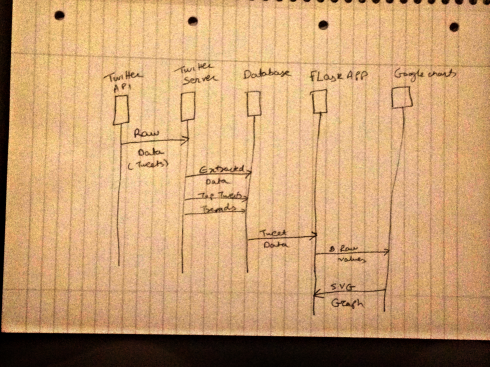 Twitter
API
Twitter
Server
Database
Flask APP
Google charts
Raw
Data
(Tweets)
Extracted
Data
Top Tweets
Trends
Tweet
Data
Raw
values
SVG
Graph